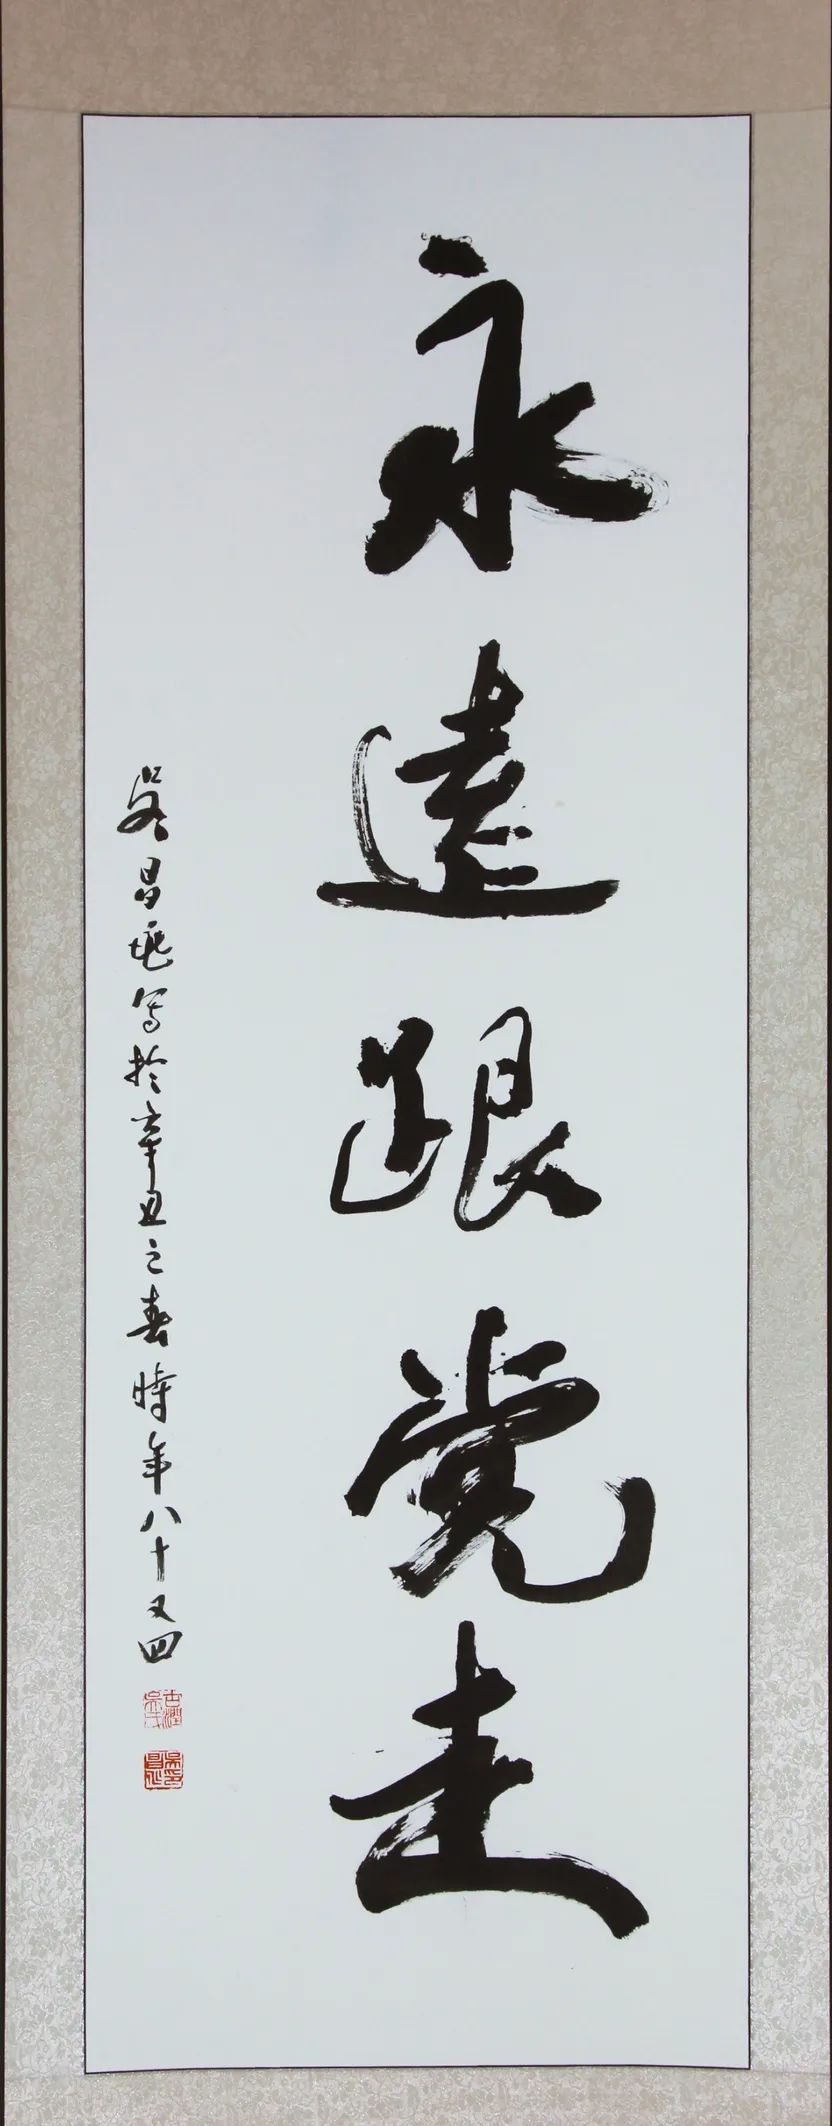 永遠跟党走
吴昌 写於辛丑之春時年八十又四